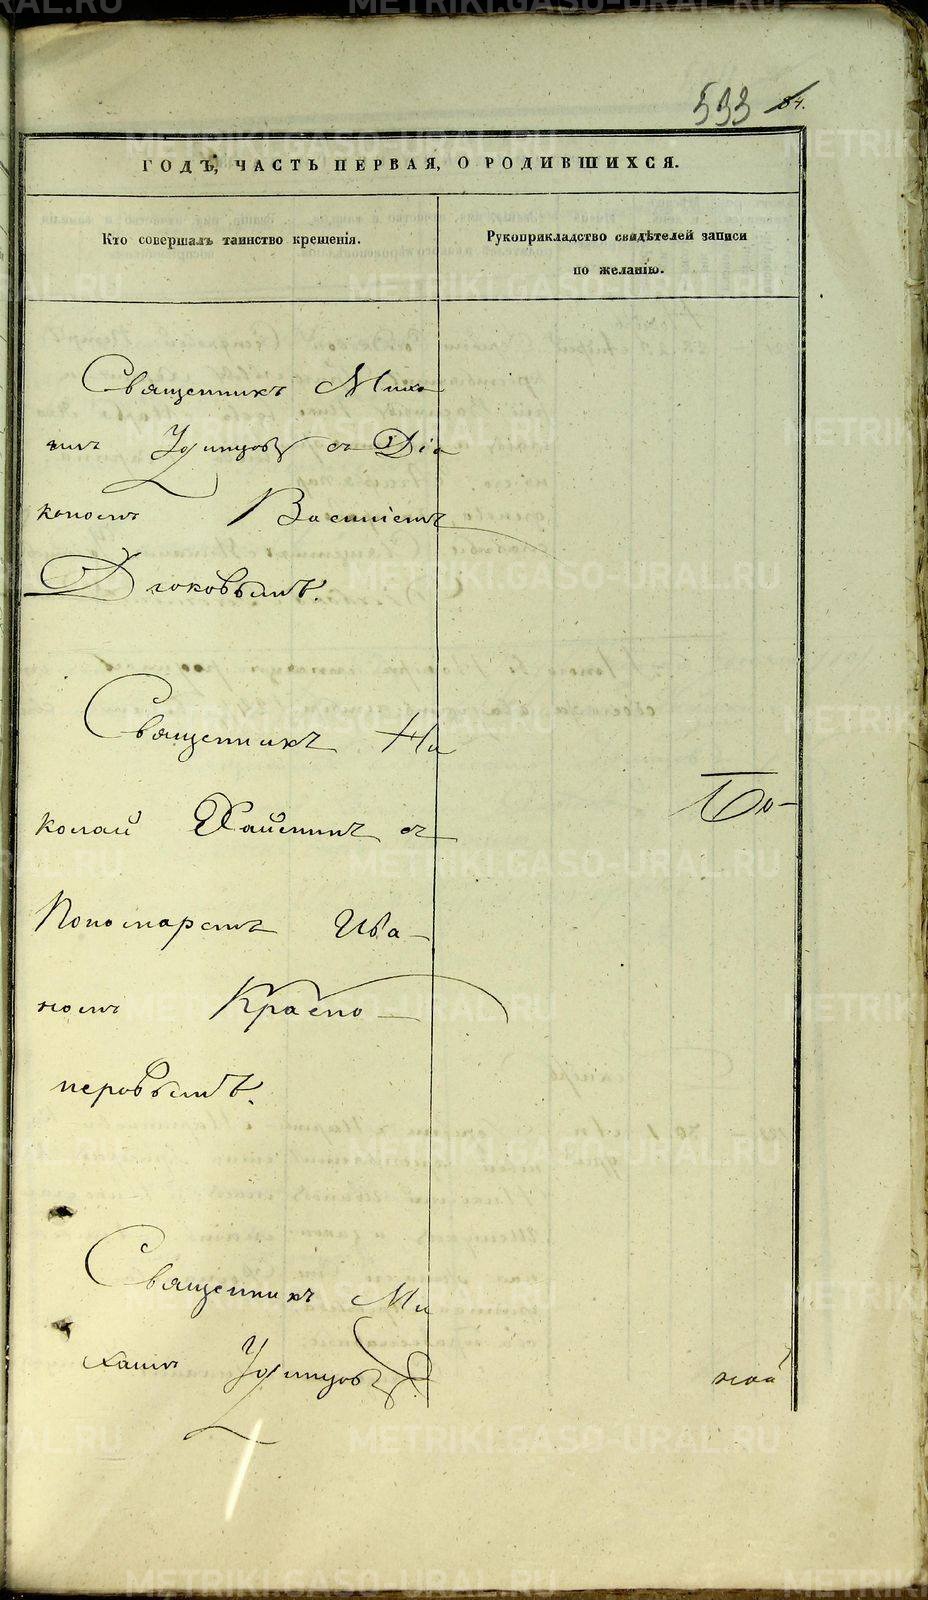 533 84.
ГОДЪ, ЧАСТЬ ПЕРВАЯ, О РОДИВШИХСЯ.
Кто совершалъ таинство крещенія.
Рукоприкладство свидѣтелей записи
по желанію.
Священникъ Миха
илъ Удинцовъ съ Діа
кономъ Василіемъ
Дюковымъ.
Священникъ Ни
колай съ
Пономаремъ Ива-
номъ Красно-
перовымъ.
Священникъ Ми
хаилъ Удинцовъ
ной
METRIKI.GASO-URAL.RU